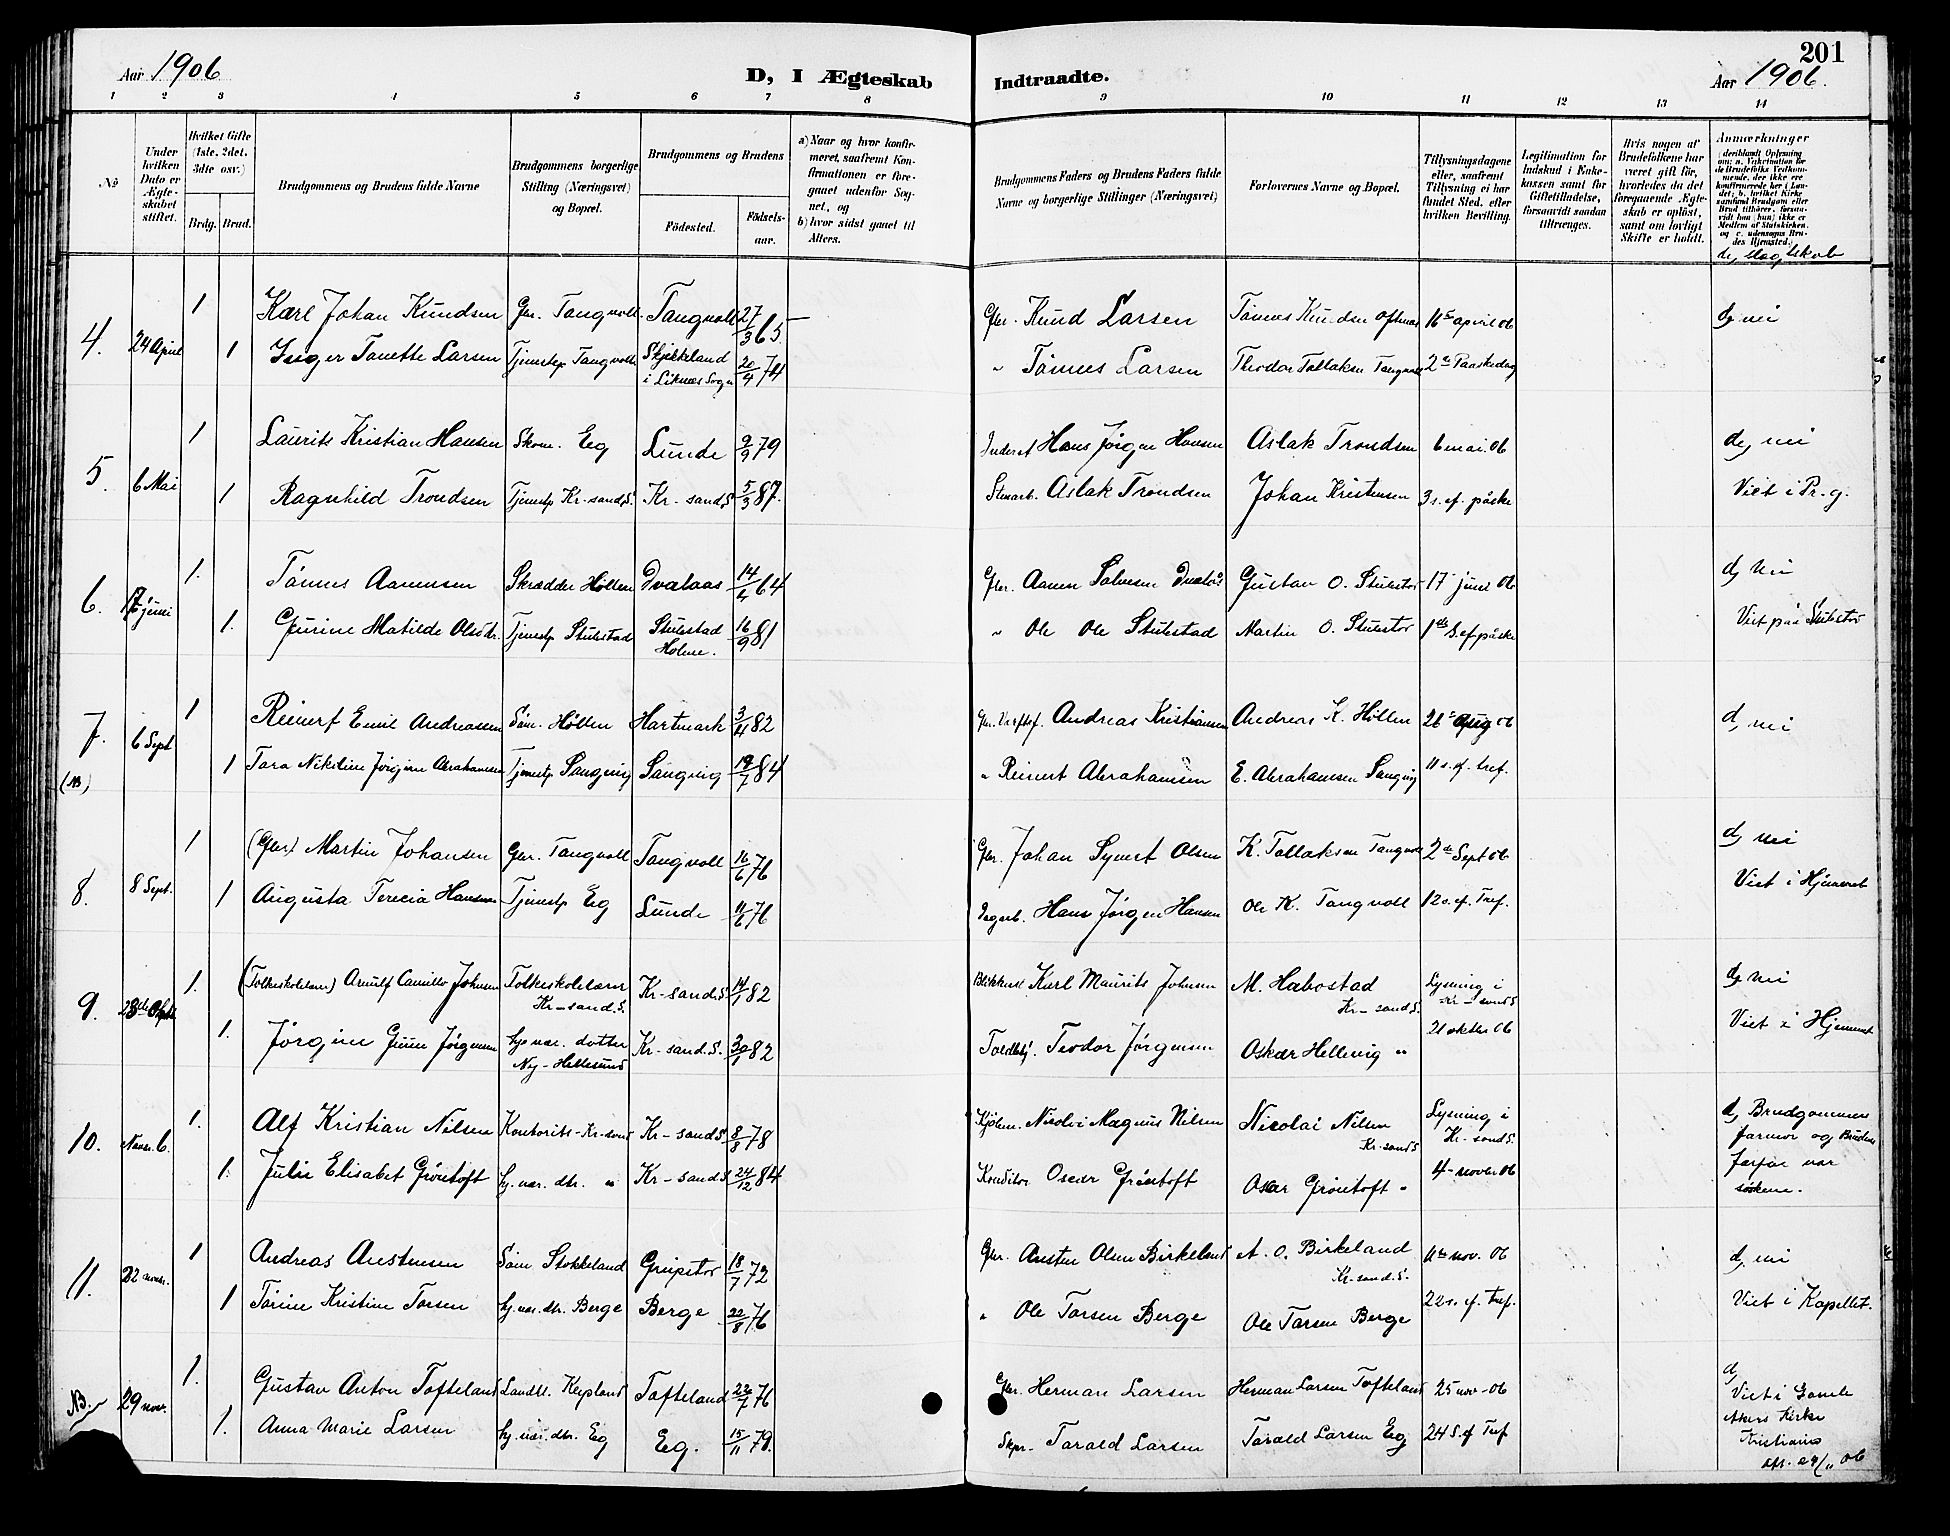 201
Aar 1906
D, I Ægteskab
Indtraadte.
Aar 1906.
1 2 3 4 5 6 7 8 9 10 11 12 13 14
No
Under hvilken Dato er Ægte-skabet stiftet.
Hvilket Gifte (1ste, 2det, 3dte osv.)
Brdg. Brud.
Brudgommens og Brudens fulde Navne
Brudgommens borgerlige Stilling (Næringsvei) og Bopæl.
Brudgommens og Brudens
Fødested.
Fødsels-aar.
a) Naar og hvor konfir-meret, saafremt Kon-firmationen er fore-gaaet udenfor Sog-net, og
b) hvor sidst gaaet til Alters.
Brudgommens Faders og Brudens Faders fulde Navne og borgerlige Stillinger (Næringsvei)
Forlovernes Navne og Bopæl.
Tillysningsdagene eller, saafremt Tillysning ei har fundet Sted, efter hvilken Bevilling.
Legitimation for Indskud i Enke-kassen samt for Giftetilladelse, forsaavidt saadan tiltrænges.
Hvis nogen af Brudefolkene har været gift før, hvorledes da det foregaaende Ægte-skab er opløst, samt om lovligt Skifte er holdt.
Anmærkninger
(deriblandt Oplysning om: a. Vakcination for de Brudefolks Vedkom-mende, der ikke ere konfirmerede her i Lan-det; b. hvilket Kirke-samfund Brudgom eller Brud tilhører, forsaa-vidt han (hun) ikke er Medlem af Statskirken, og c. udensogns Bru-des Hjemsted.)
d, slægtskab
4. 24 April 1 Karl Johan Knudsen Gbr. Tangvoll Tangvoll 27/3 65 Gbr. Knud Larsen Tønnes Knudsen Oftenes 16de april 06 d, nei
1 Inger Tonette Larsen Tjenestep Tangvoll Skjekkeland i Liknes Sogn 20/4 74 " Tønnes Larsen Theodor Tollaksen Tangvoll 2den Paaskedag
5. 6 Mai 1 Laurits Kristian Hansen Skom. Eg Lunde 9/9 79 Inderst Hans Jørgen Hansen Aslak Trondsen 6 mai 06 d, nei
1 Ragnhild Trondsen Tjenestp Kr-sand S. Kr-sand S 5/3 87. Stenarb. Aslak Trondsen Johan Kristensen 3 s. ef. påske Viet i Pr.g.
6. 17 juni 1. Tønnes Aanensen Skrædder Høllen Dvalaas 14/4 64 Gbr. Aanen Salvesen Gustav O. Stulestø 17 juni 06 d, nei
1. Gurine Matilde Olsdtr. Tjenestp Stulestad Stulestad Holme. 16/9 81 " Ole Ole Stulestad Martin O. Stulestø Viet på Stulestø
7. (NB) 6 Sept 1 Reinert Emil Andreassen Søm. Høllen Hartmark 3/4 82 Andreas Kristiansen Andreas K. Høllen 26de aug 06 d, nei
1 Tora Nikoline Jørgine Abrahamsen Tjenestp Langvig Langvig 19/7 84 " Reinert Abrahamsen E. Abrahamsen Langvig 11 s. ef. tref.
8. 8 Sept. 1 (Gbr) Martin Johansen Gbr. Tangvoll Tangvoll 16/6 76 Gbr. Johan Syvert Olsen K. Tollaksen Tangvoll 2den Sept 06 d, nei
1 Augusta Terecia Hansen Tjenestp Eg Lunde 11/6 76 Dagarb. Hans Jørgen Hansen Ole K. Tangvoll 12 s. ef. Tref. Viet i Hjemmet
9. 1. (Folkeskolelærer) Arnulf Camillo Johnsen Folkeskolelærer Kr-sand. S. Kr-sand. S 14/1 82 Karl Maurits Johnsen M. Habostad Kr-sand S. Lysning i Kr-sand S d, nei
1. Jørgine Jørgensen hjvær. datter Ny-Hellesund Kr-sand. S. 30/1 82 Toldbtj. Teodor Jørgensen Oskar Hellevig " 21 oktbr 06 Viet i Hjemmet
10. Novbr. 6. 1. Alf Kristian Nilsen Kontorist-Kr-sand Kr-sand S. 8/8 78 Kjøbm. Nicolai Magnus Nilsen Nicolai Nilsen Kr-sand S Lysning i Kr-sand S. d, Brudgommens farmor og Brudens farfar var søskene.
1. Julie Elisabet Grøntoft hj. vær. dtr. " Kr-sand S 24/12 84 Konditor Oscar Grøntoft Oscar Grøntoft " 4-novbr 06
11. 22 novbr. 1 Andreas Anstensen Søm. Stokkeland Grepstø 18/7 72 Gbr. Ansten Olsen Birkeland A. O. Birkeland Kr-sand. S. 11te nov. 06 d, nei
1 Torine Kristine Torsen hj. vær. dtr. Berge Berge 22/8 76 " Ole Torsen Berge Ole Torsen Berge 22 s. ef. tref. Viet i Kapellet.
NB. 29 nov. 1. Gustav Anton Tofteland Landh. Tofteland 22/7 76 Gbr. Herman Larsen Herman Larsen Tofteland 25 nov-06 d, Viet i Gamle Akers Kirke Kristiania
1. Anna Marie Larsen hj. vær. dtr. Eg Eg. 15/11 79. Skpr. Tarald Larsen Tarald Larsen Eg 24 S. ef Tref